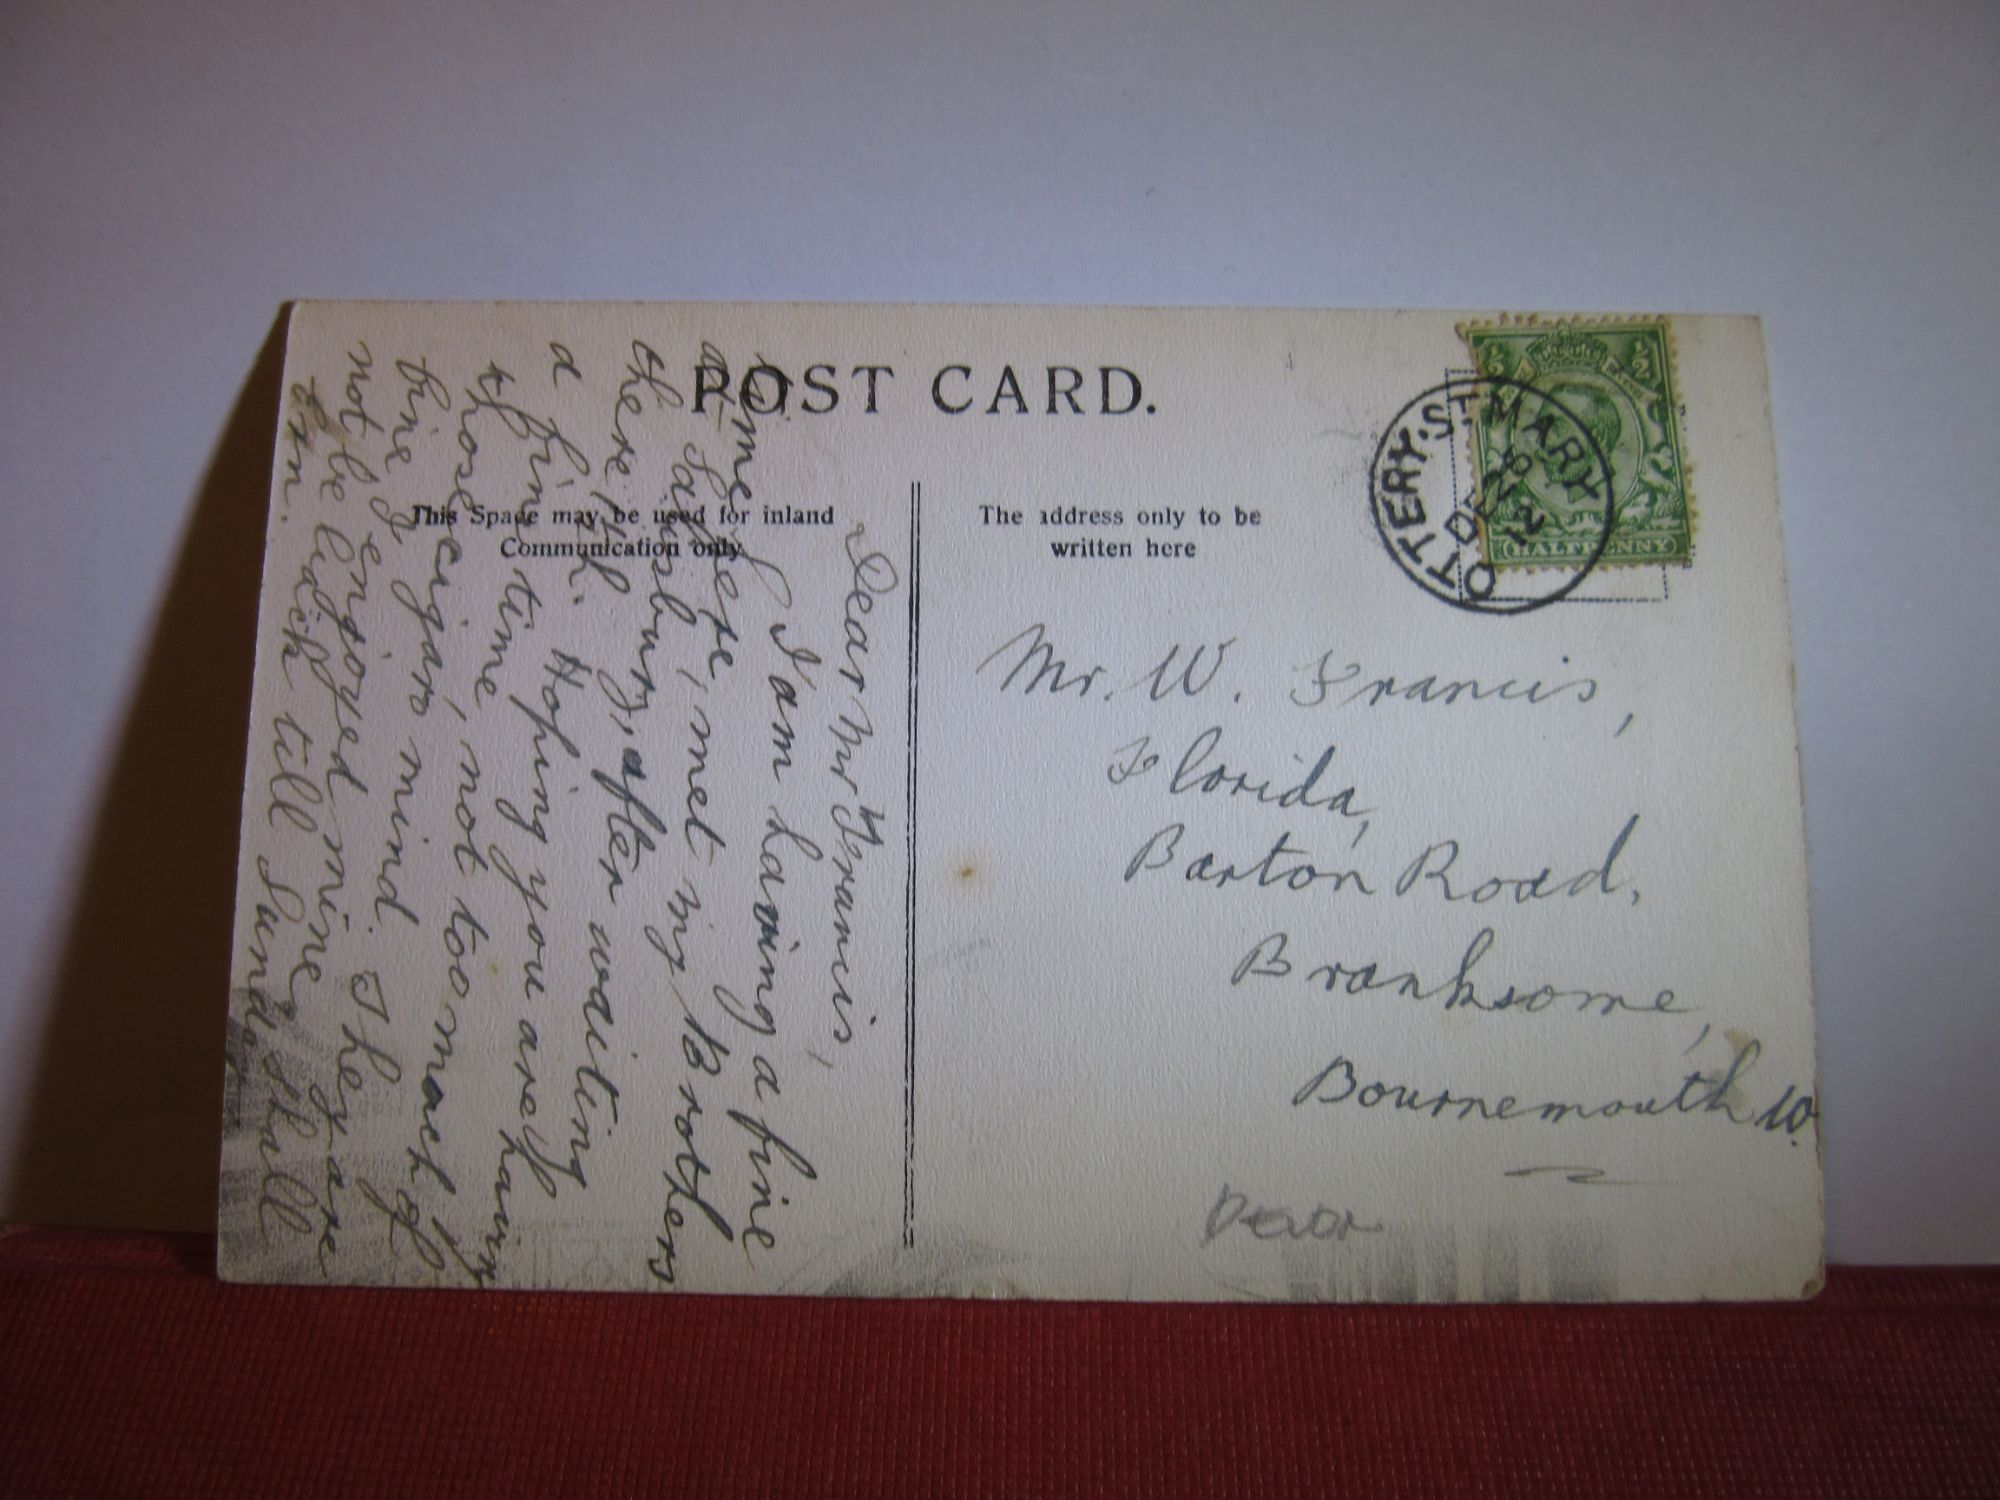 POST CARD.
This Space may be used for inland
Communication only
The address only to be
written here
OTTERY.ST MARY
DE 26
12
HALFPENNY
Mr. W. Francis,
Florida,
Barton Road,
Branksome,
Bournemouth W.
Devon
Dear Mr Francis,
I am having a fine
time here, met my Brothers
at Salisbury, after waiting
there 1/2 h. Hoping you are having
a fine time, not too much of
those cigars mind. They are
fine I enjoyed mine shall
not be back till Sunday
Ern.